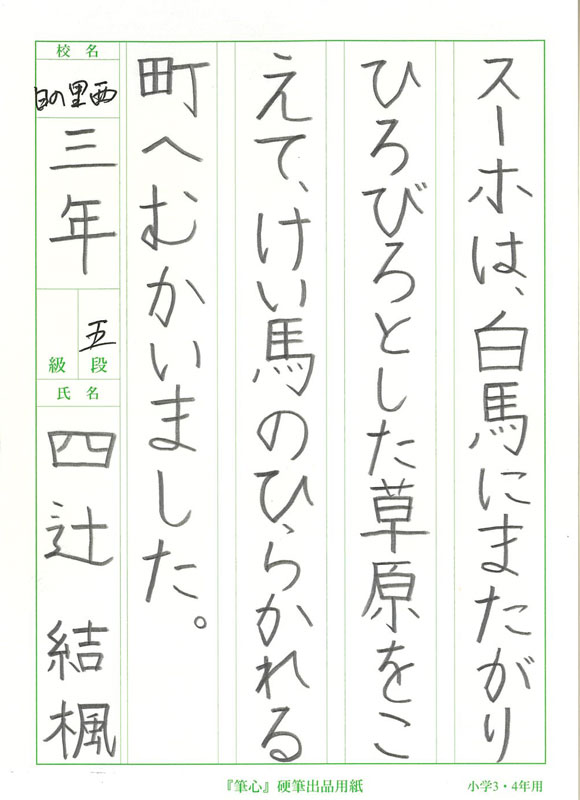 スーホは、白馬にまたがり
ひろびろとした草原をこ
えて、けい馬のひらかれる
町へむかいました。
校名
日の里西
三年
五段
級
氏名
四辻結楓
『筆心』硬筆出品用紙
小学3・4年用